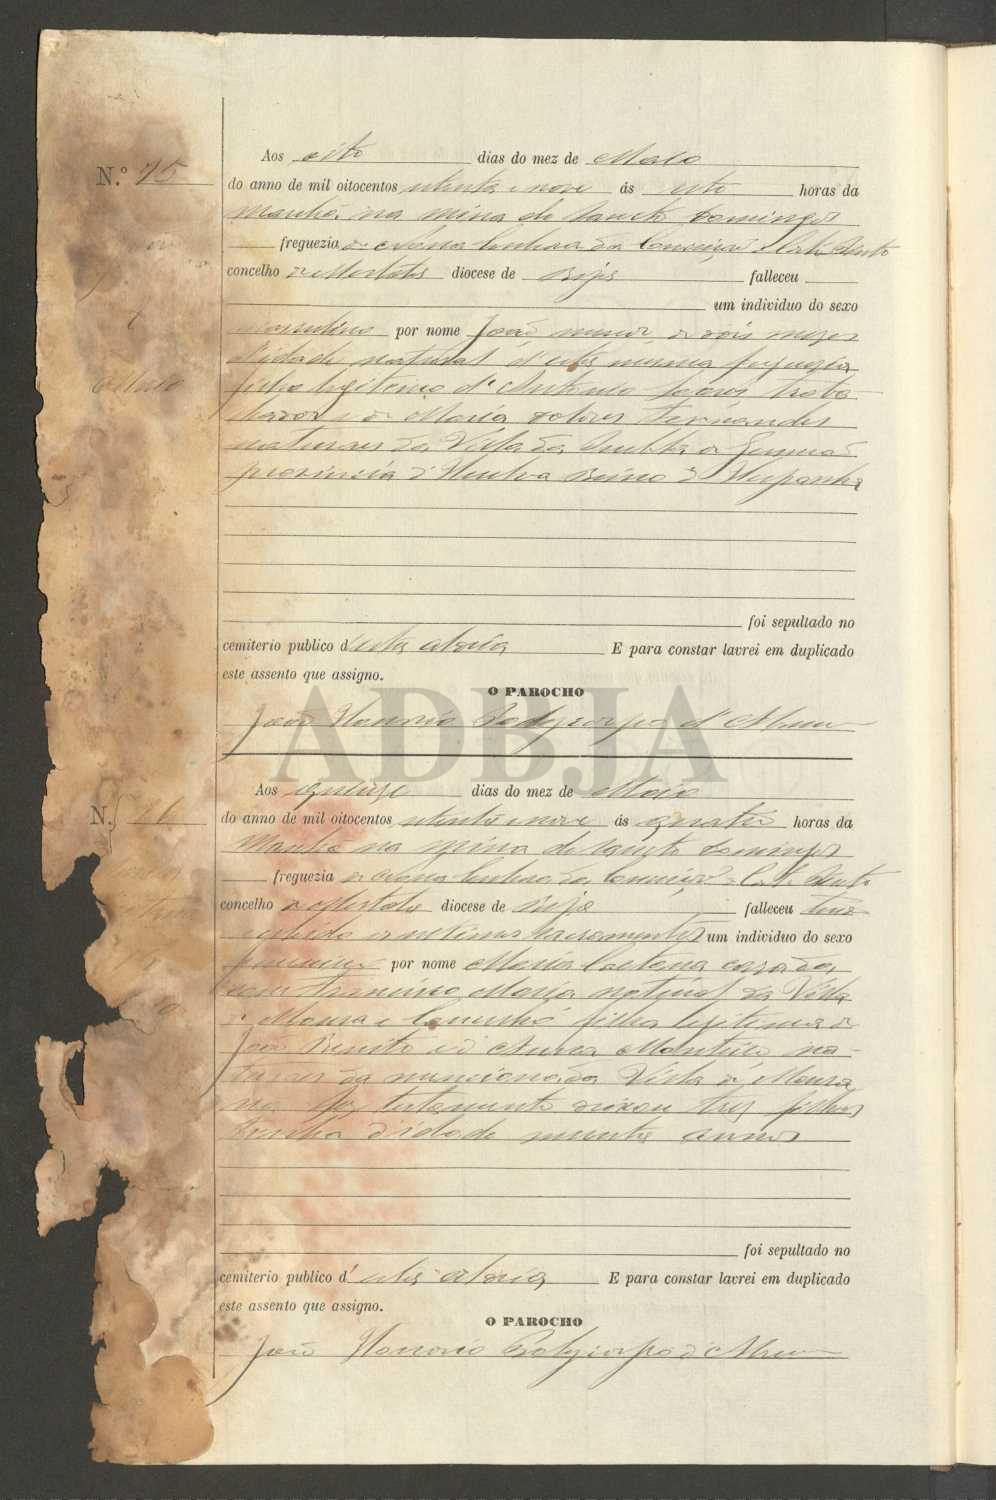 N.º 15
Aos oito dias do mez de Maio
do anno de mil oitocentos oitenta e nove ás oito horas da
manhã na mina de Sancto Domingos
freguezia de Nossa Senhora da Conceição
concelho de Mertola diocese de Beja falleceu
um individuo do sexo
masculino por nome João menor de dois mezes
d'idade natural d'esta mesma freguezia
filho legitimo d'Antonio traba-
lhador e de Maria Dolores Fernandes
naturaes da Villa da Puebla de Gusmão
provincia d'Huelva Reino d'Hespanha
foi sepultado no
cemiterio publico d'esta aldeia E para constar lavrei em duplicado
este assento que assigno.
O PAROCHO
João Honorio Polycarpo d'Abreu
ADBJA
N.º 16
Aos quinze dias do mez de Maio
do anno de mil oitocentos oitenta e nove ás quatro horas da
Manhã na mina de Sancto Domingos
freguezia de Nossa Senhora da Conceição
concelho de Mertola diocese de Beja falleceu tendo
recebido os ultimos sacramentos um individuo do sexo
feminino por nome Maria Caetana casada
com Francisco Maria natural da Villa
de Moura filha legitima de
João Bento e d'Anna Monteiro na-
turaes da mencionada Villa de Moura
não fez testamento deixou tres filhos
tinha d'idade annos
foi sepultado no
cemiterio publico d'esta aldeia E para constar lavrei em duplicado
este assento que assigno.
O PAROCHO
João Honorio Polycarpo d'Abreu